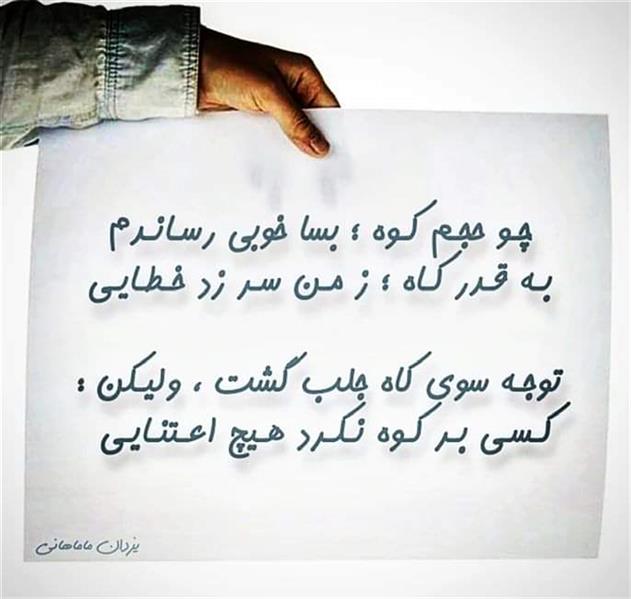 چو حجم کوه ؛ بسا خوبی رساندم
به قدر کاه ؛ ز من سر زد خطایی
توجه سوی کاه جلب گشت ، ولیکن :
کسی بر کوه نکرد هیچ اعتنایی
یزدان ماماهانی